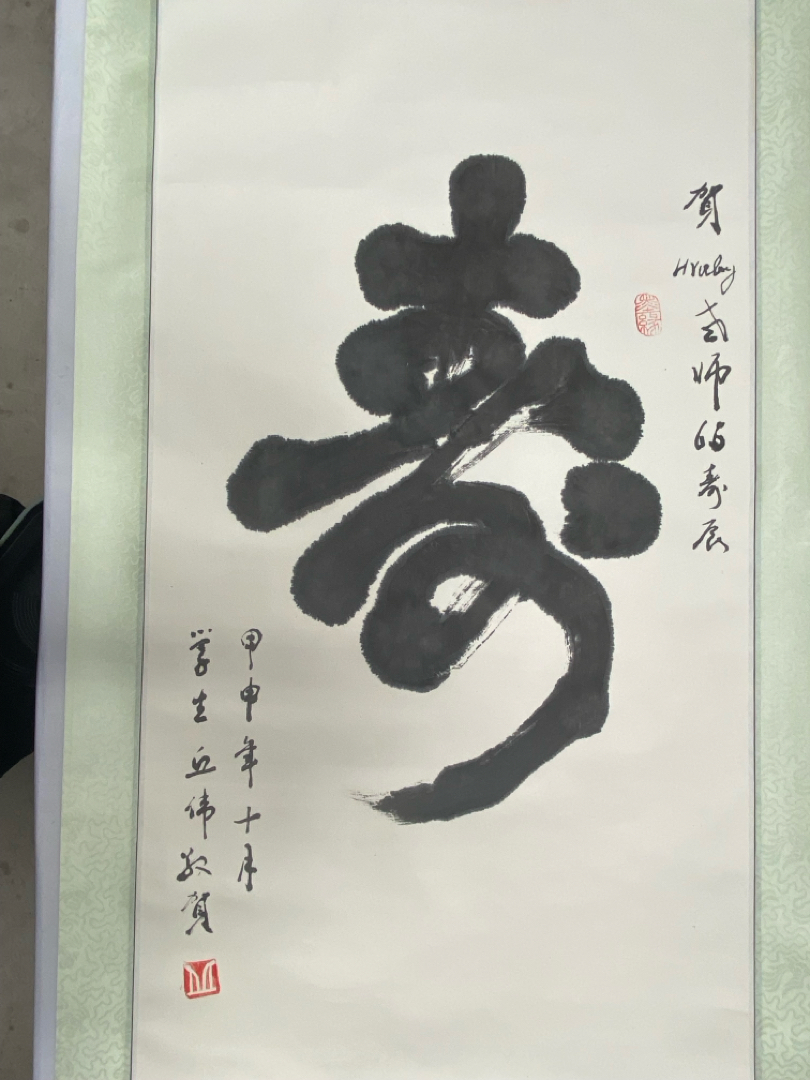 贺Hruby老师的寿辰
寿
甲申年十月
学生丘伟敬贺